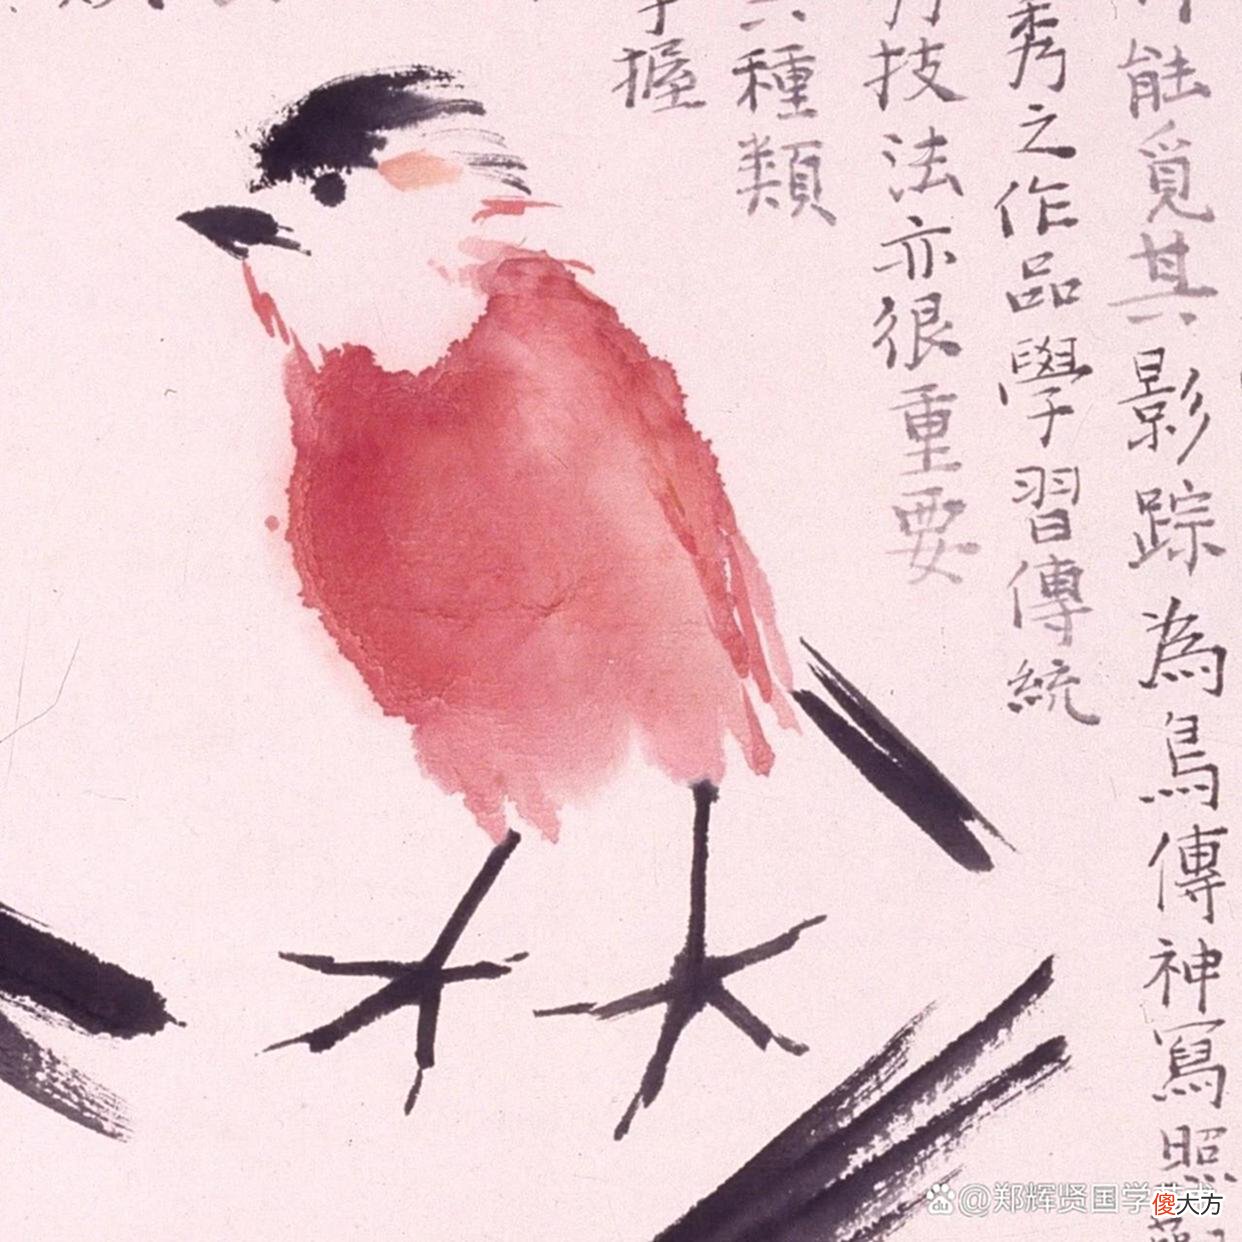 能覓其影踪為鳥傳神寫照
秀之作品學習傳統
技法亦很重要
種類
握
@郑辉贤国学艺术
傻大方